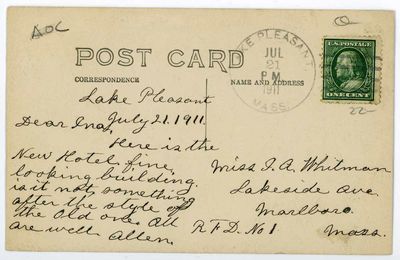 AOC
POST CARD
CORRESPONDENCE
NAME AND ADDRESS
LAKE PLEASANT
JUL
21
P M
1911
MASS.
U.S. POSTAGE
ONE CENT
22-
Lake Pleasant
July 21. 1911.
Dear Ina,
Here is the
New Hotel fine,
looking building
is it not, something
after the style of
the old one. All
are well. Allen.
Miss I. A. Whitman
Lakeside Ave.
Marlboro.
R F D. No 1 Mass.